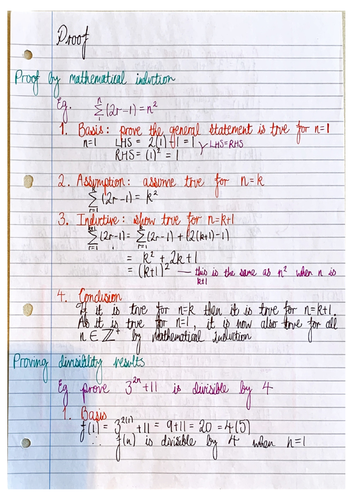 Proof
Proof by mathematical induction
Eg. n Σ 1 (2r-1) = n²
1. Basis: prove the general statement is true for n=1
n=1 LHS = 2(1)-1 = 1 LHS=RHS
RHS = (1)² = 1
2. Assumption: assume true for n=k
k Σ r=1 (2r-1) = k²
3. Inductive: show true for n=k+1
k+1 Σ r=1 (2r-1) = k Σ r=1 (2r-1) + (2(k+1)-1)
= k² + 2k+1
= (k+1)² — this is the same as n² when n is
k+1
4. Conclusion
If it is true for n=k then it is true for n=k+1.
As it is true for n=1, it is now also true for all
n ∈ ℤ⁺ by Mathematical Induction
Proving divisibility results
Eg prove 3²ⁿ+11 is divisible by 4
1. Basis
f(1) = 3²⁽¹⁾+11 = 9+11 = 20 = 4(5)
∴ f(n) is divisible by 4 when n=1